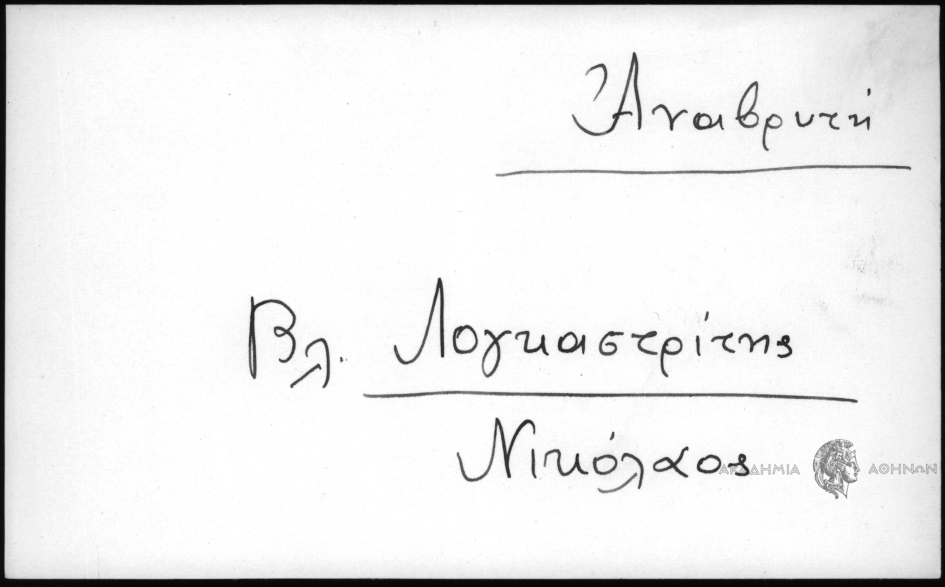 Ἀναβρυτή
Βλ. Λογκαστρίτης
Νικόλαος
ΑΚΑΔΗΜΙΑ ΑΘΗΝΩΝ